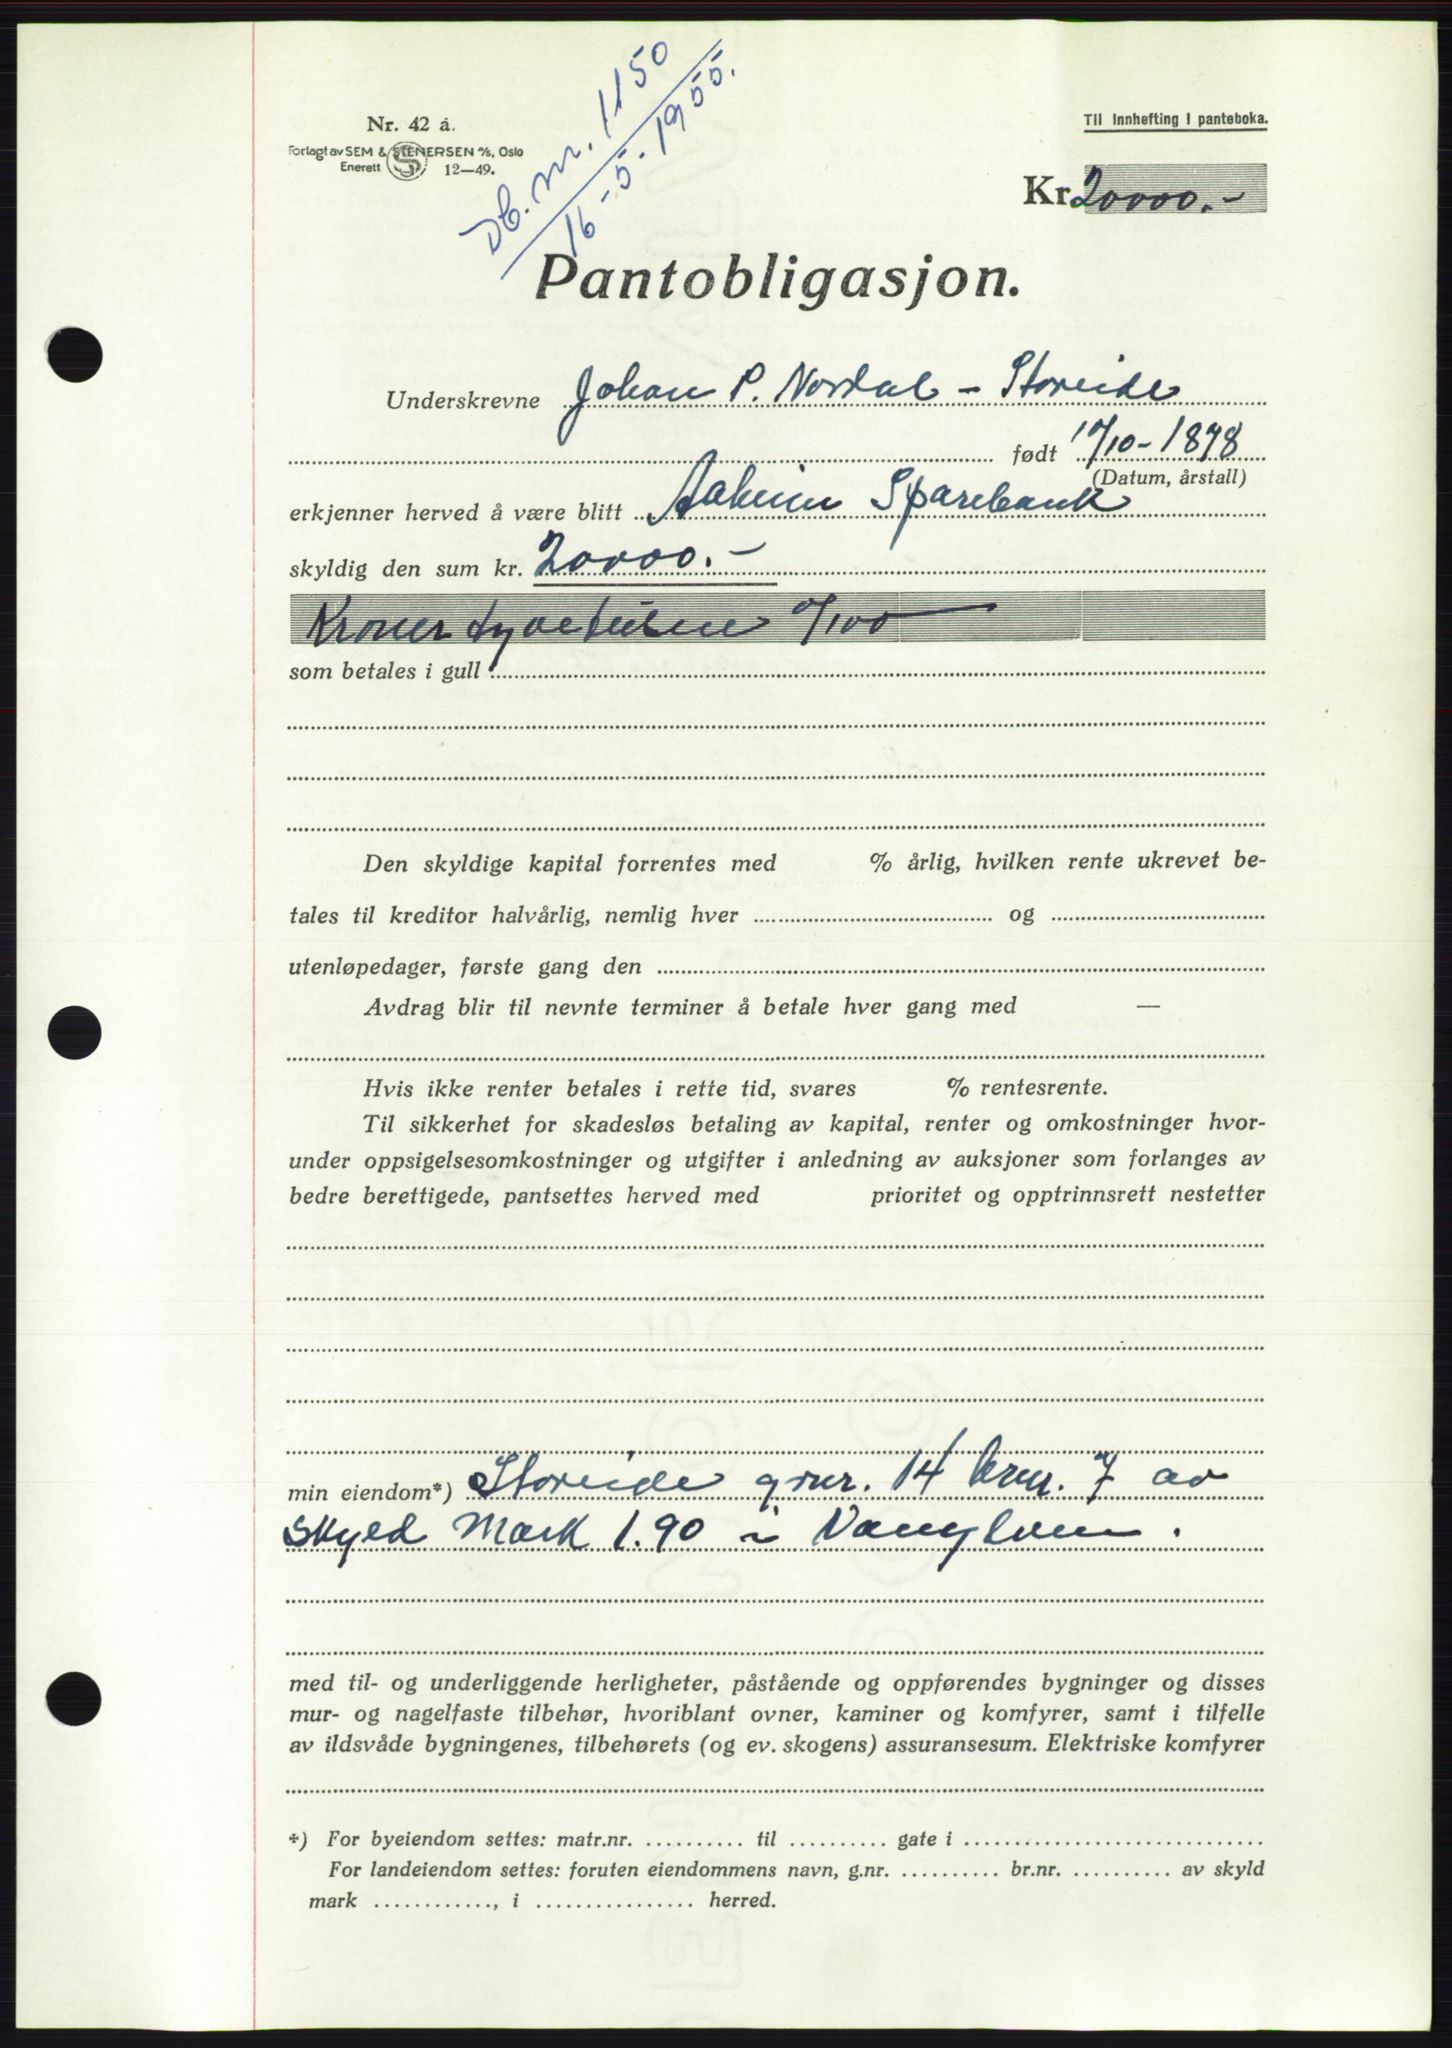 Db. nr. 1150
16-5-1955.
Nr. 42 a.
Forlagt av SEM & STENERSEN A/S, Oslo
Enerett 12—49.
Til innhefting i panteboka.
Kr. 20000.-
Pantobligasjon.
Underskrevne Johan P. Nordal - Storeide
født 17/10-1878
(Datum, årstall)
erkjenner herved å være blitt Aaheim Sparebank
skyldig den sum kr. 20000.-
Kroner tyvetusen 0/100
som betales i gull
Den skyldige kapital forrentes med % årlig, hvilken rente ukrevet be-
tales til kreditor halvårlig, nemlig hver og
utenløpedager, første gang den
Avdrag blir til nevnte terminer å betale hver gang med —
Hvis ikke renter betales i rette tid, svares % rentesrente.
Til sikkerhet for skadesløs betaling av kapital, renter og omkostninger hvor-
under oppsigelsesomkostninger og utgifter i anledning av auksjoner som forlanges av
bedre berettigede, pantsettes herved med prioritet og opptrinnsrett nestetter
min eiendom*) Storeide gnr. 14 brnr. 7 av
skyld Mark 1.90 i Vanylven.
med til- og underliggende herligheter, påstående og oppførendes bygninger og disses
mur- og nagelfaste tilbehør, hvoriblant ovner, kaminer og komfyrer, samt i tilfelle
av ildsvåde bygningenes, tilbehørets (og ev. skogens) assuransesum. Elektriske komfyrer
*) For byeiendom settes: matr.nr. .......... til .......... gate i ..............................
For landeiendom settes: foruten eiendommens navn, g.nr. .......... br.nr. .......... av skyld
mark ............, i ................ herred.